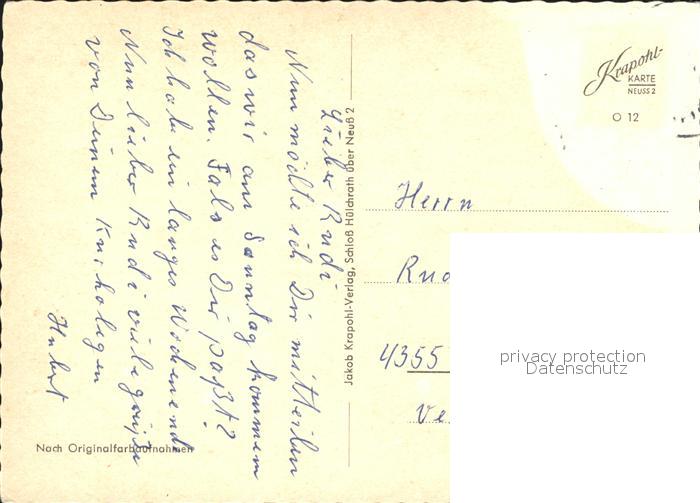 Lieber Rudi
Nun möchte ich Dir mitteilen
das wir am Sonntag kommen
wollen. Fals es Dir paßt?
Ich hab ein langes Wochenend
Nun lieber Rudi viele grüße
von Deinem
Hubert
Nach Originalfarbaufnahmen
Jakob Krapohl-Verlag, Schloß Hülchrath über Neuß 2
Krapohl-
KARTE
NEUSS 2
O 12
Herrn
Rud
4355
privacy protection
Datenschutz